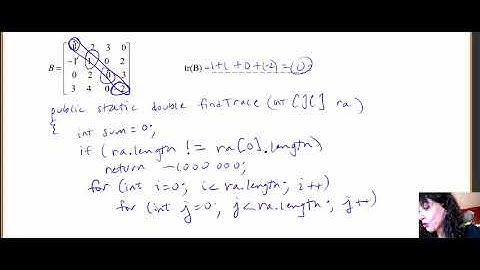 2 3 0
B = -1 1 0 2 tr(B) = -1+1+0+(-2) = (0)
0 2 0 3
3 4 0 2
public static double findTrace (int [][] ra)
{ int sum = 0;
if (ra.length != ra[0].length)
return -1000000;
for (int i=0; i<ra.length; i++)
for (int j=0; j<ra.length; j++)